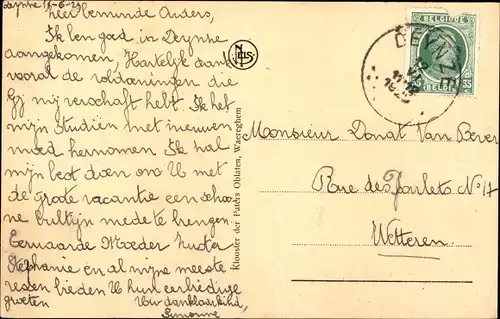 Deynze 17-6-29
Zeer beminde Ouders,
Ik ben goed in Deynse
aangekomen, Hartelijk dank
vooral de voldaningen die
Gij mij verschaft hebt. Ik het
mijn Studiën met nieuwen
moed hernomen. Ik zal
mijn best doen ons U met
de groote vacantie een schoo-
ne bultijn mede te brengen.
Eerwaarde Moeder zuster
Stephanie en al mijne meeste
ressen bieden U hun eerbiedige
groeten Uw dankbaar kind,
Simonne
NELS
Klooster der Paters Oblaten, Waereghem
BELGIQUE
35 35
BELGIË
DEYNZE
Monsieur Donat Van Bever
Rue des Poulets No 17
Wetteren.